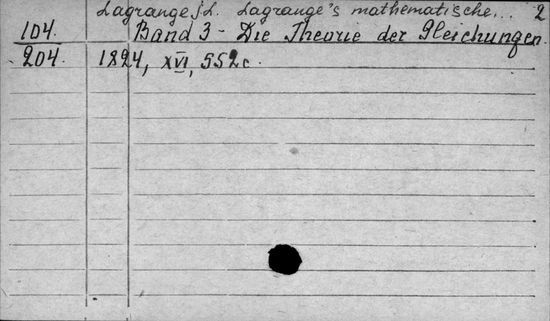 Lagrange J.L. Lagrange's mathematische... 2
104. Band 3 - Die Theorie der Gleichungen
204. 1824, XVI, 552c.